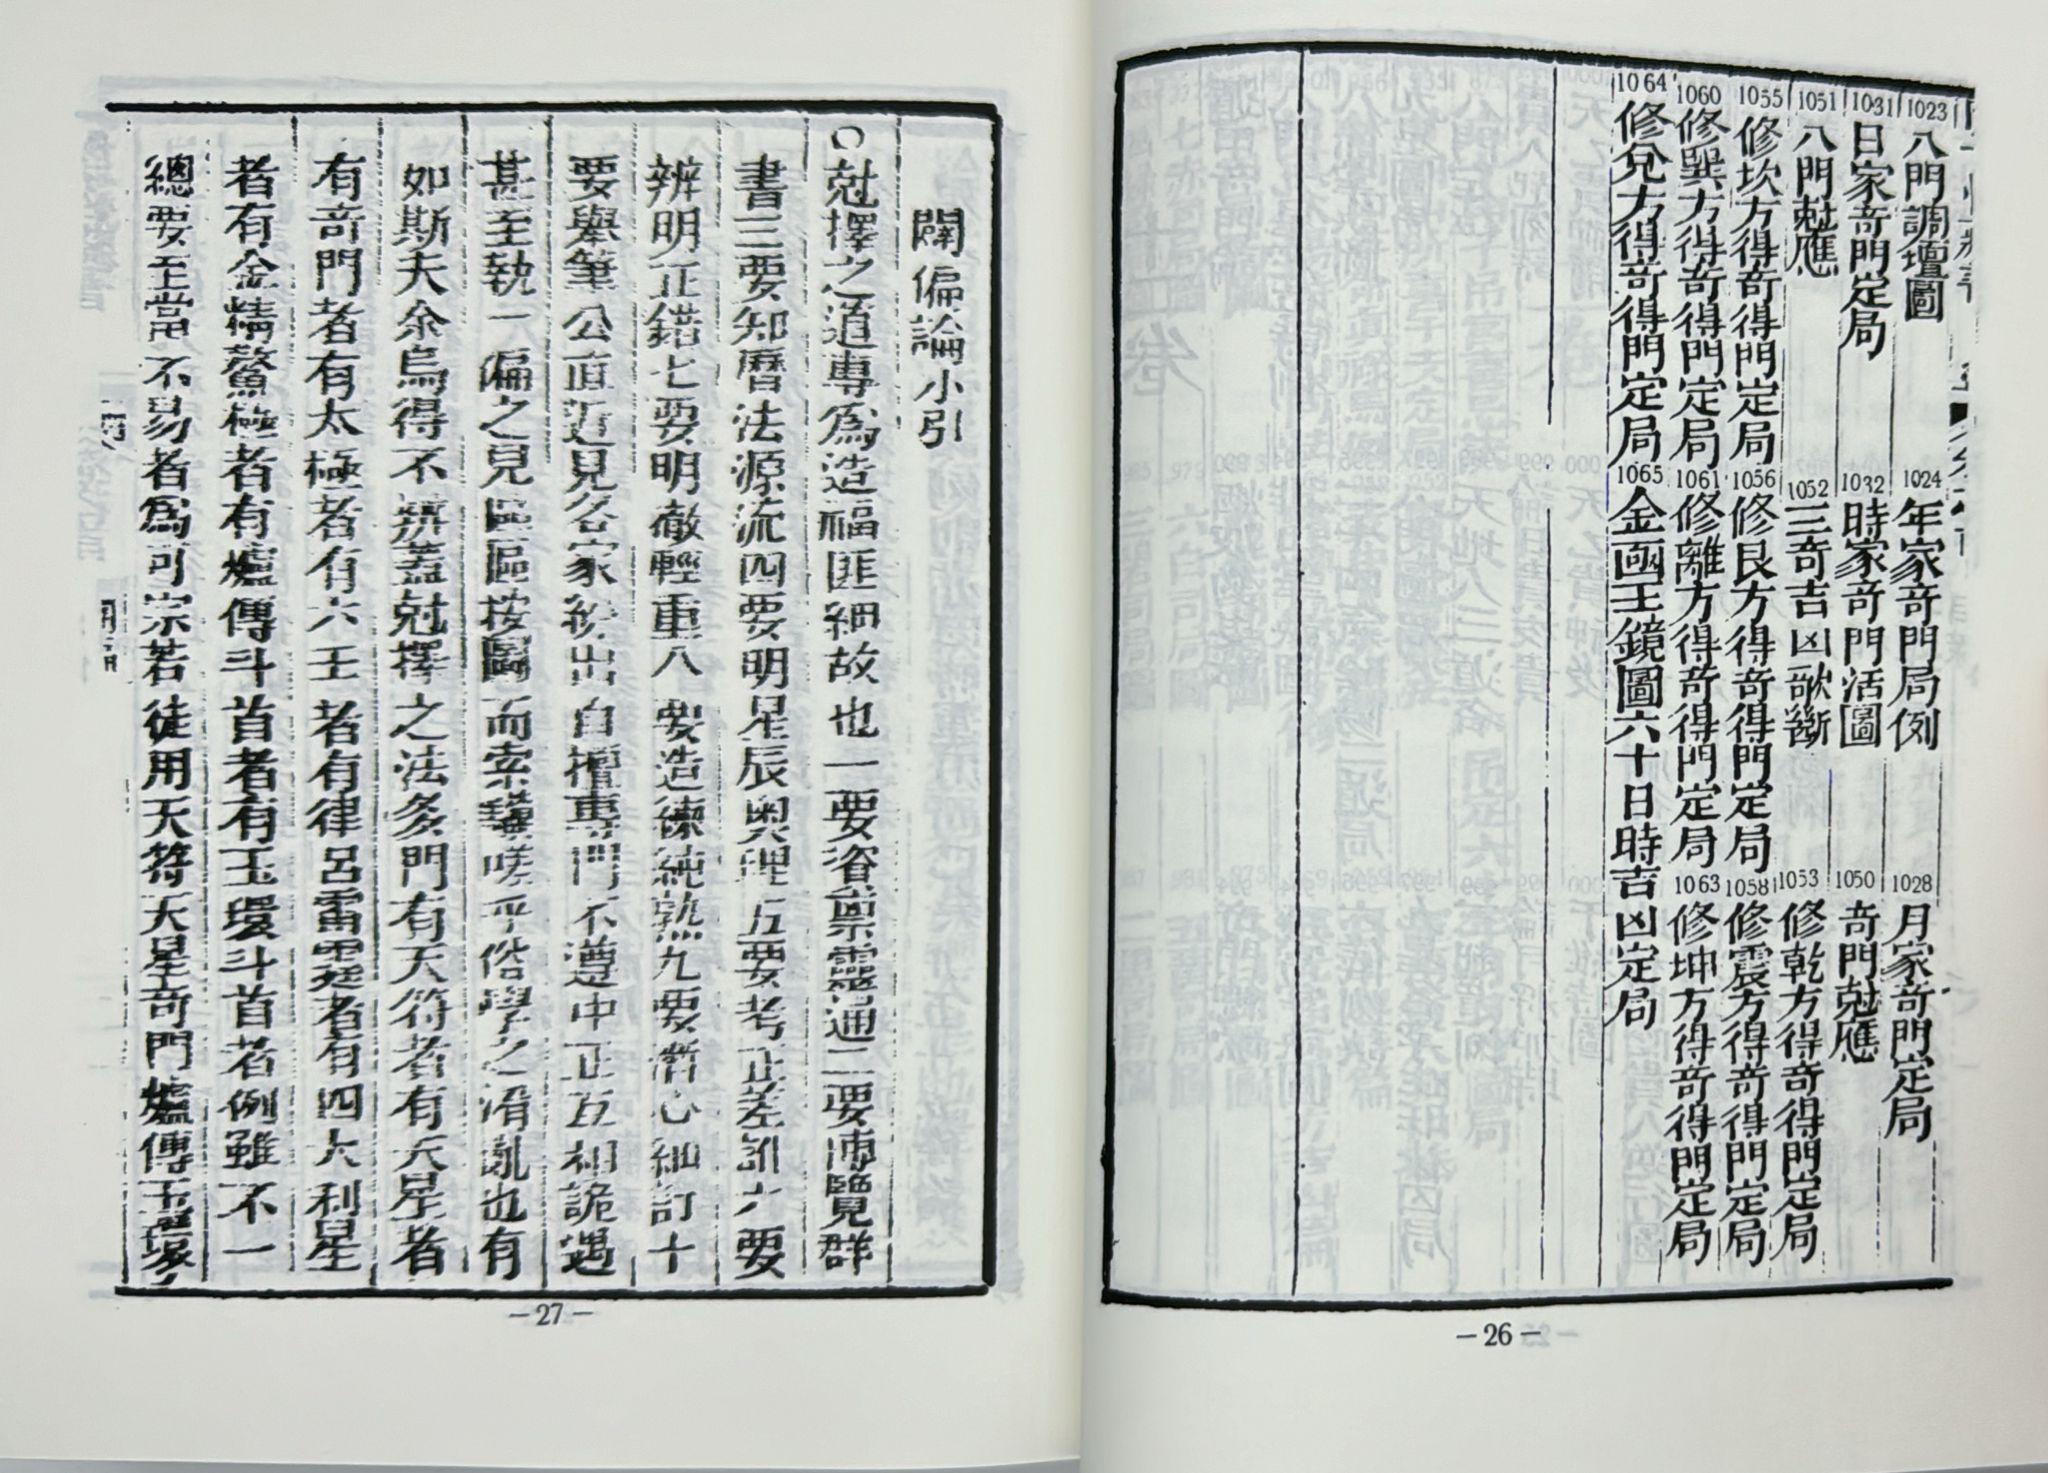 1023 八門調壇圖 1024 年家奇門局例 1028 月家奇門定局
1031 日家奇門定局 1032 時家奇門活圖 1050 奇門尅應
1051 八門尅應 1052 三奇吉凶歌斷 1053 修乾方得奇得門定局
1055 修坎方得奇得門定局 1056 修艮方得奇得門定局 1058 修震方得奇得門定局
1060 修巽方得奇得門定局 1061 修離方得奇得門定局 1063 修坤方得奇得門定局
1064 修兌方得奇得門定局 1065 金函玉鏡圖六十日時吉凶定局
—26—
闢偏論小引
○尅擇之道專為造福匪細故也一要資稟靈通二要博覽群
書三要知曆法源流四要明星辰奧理五要考正差訛六要
辨明正錯七要明徹輕重八要造練純熟九要潛心細訂十
要舉筆公直近見各家紛出自擅專門不遵中正互相詭遇
甚至執一偏之見區區按圖而索驥嗟乎俗學之淆亂也有
如斯夫余烏得不辨蓋尅擇之法多門有天符者有天星者
有奇門者有太極者有六壬者有律呂雷霆者有四大利星
者有金精鰲極者有爐傳斗首者有玉環斗首者例雖不一
總要至當不易者為可宗若徒用天符天星奇門爐傳玉環
—27—